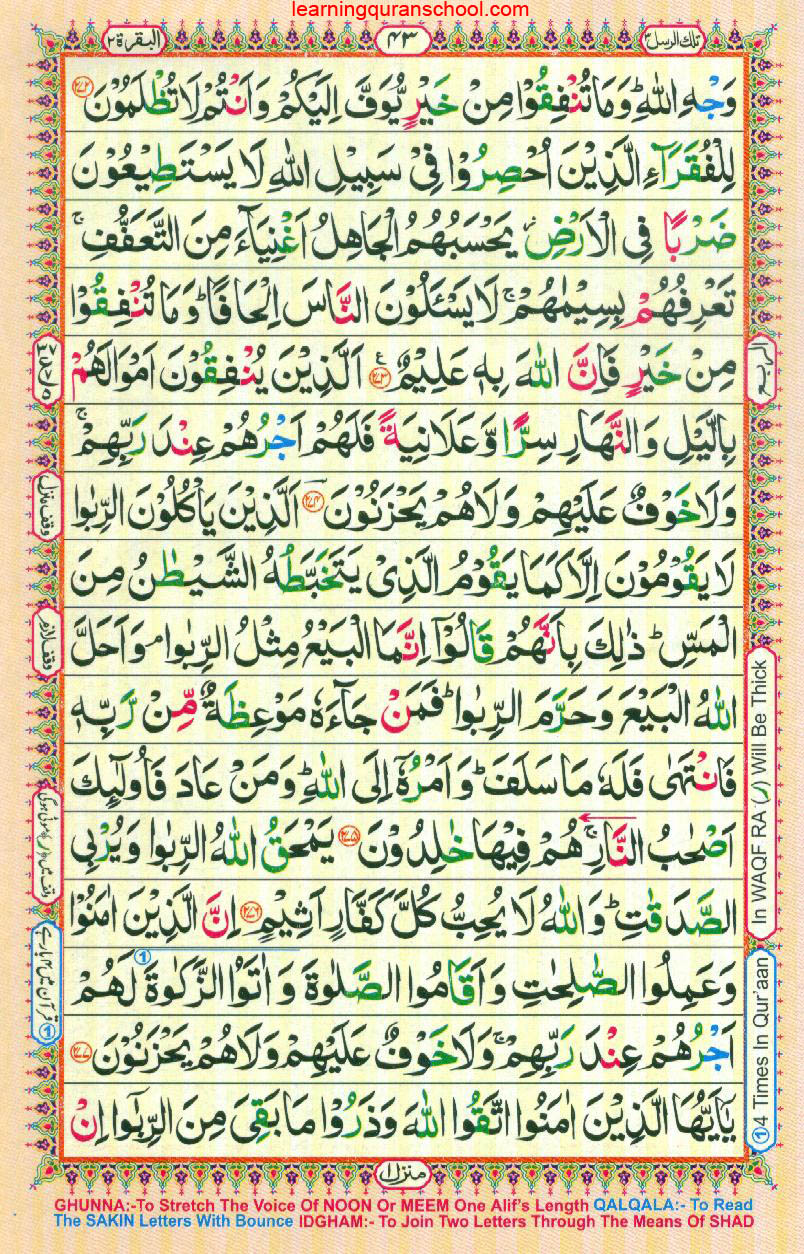 learningquranschool.com
تلك الرسل ٣
٤٣
البقرة ٢
وَجْهِ اللّٰهِ ؕ وَمَا تُنْفِقُوْا مِنْ خَيْرٍ يُّوَفَّ اِلَيْكُمْ وَاَنْتُمْ لَا تُظْلَمُوْنَ ﴿۲۷۲﴾
لِلْفُقَرَآءِ الَّذِيْنَ اُحْصِرُوْا فِيْ سَبِيْلِ اللّٰهِ لَا يَسْتَطِيْعُوْنَ
ضَرْبًا فِى الْاَرْضِ ۫ يَحْسَبُهُمُ الْجَاهِلُ اَغْنِيَآءَ مِنَ التَّعَفُّفِ ۚ
تَعْرِفُهُمْ بِسِيْمٰهُمْ ۚ لَا يَسْـَٔلُوْنَ النَّاسَ اِلْحَافًا ؕ وَمَا تُنْفِقُوْا
مِنْ خَيْرٍ فَاِنَّ اللّٰهَ بِهٖ عَلِيْمٌ ﴿۲۷۳﴾ اَلَّذِيْنَ يُنْفِقُوْنَ اَمْوَالَهُمْ
بِالَّيْلِ وَالنَّهَارِ سِرًّا وَّعَلَانِيَةً فَلَهُمْ اَجْرُهُمْ عِنْدَ رَبِّهِمْ ۚ
وَلَا خَوْفٌ عَلَيْهِمْ وَلَا هُمْ يَحْزَنُوْنَ ﴿۲۷۴﴾ اَلَّذِيْنَ يَاْكُلُوْنَ الرِّبٰوا
لَا يَقُوْمُوْنَ اِلَّا كَمَا يَقُوْمُ الَّذِيْ يَتَخَبَّطُهُ الشَّيْطٰنُ مِنَ
الْمَسِّ ؕ ذٰلِكَ بِاَنَّهُمْ قَالُوْٓا اِنَّمَا الْبَيْعُ مِثْلُ الرِّبٰوا ۘ وَاَحَلَّ
اللّٰهُ الْبَيْعَ وَحَرَّمَ الرِّبٰوا ؕ فَمَنْ جَآءَهٗ مَوْعِظَةٌ مِّنْ رَّبِّهٖ
فَانْتَهٰى فَلَهٗ مَا سَلَفَ ؕ وَاَمْرُهٗٓ اِلَى اللّٰهِ ؕ وَمَنْ عَادَ فَاُولٰٓئِكَ
اَصْحٰبُ النَّارِ ۚ هُمْ فِيْهَا خٰلِدُوْنَ ﴿۲۷۵﴾ يَمْحَقُ اللّٰهُ الرِّبٰوا وَيُرْبِى
الصَّدَقٰتِ ؕ وَاللّٰهُ لَا يُحِبُّ كُلَّ كَفَّارٍ اَثِيْمٍ ﴿۲۷۶﴾ اِنَّ الَّذِيْنَ اٰمَنُوْا
وَعَمِلُوا الصّٰلِحٰتِ وَاَقَامُوا الصَّلٰوةَ وَاٰتَوُا الزَّكٰوةَ لَهُمْ
اَجْرُهُمْ عِنْدَ رَبِّهِمْ ۚ وَلَا خَوْفٌ عَلَيْهِمْ وَلَا هُمْ يَحْزَنُوْنَ ﴿۲۷۷﴾
يٰٓاَيُّهَا الَّذِيْنَ اٰمَنُوا اتَّقُوا اللّٰهَ وَذَرُوْا مَا بَقِيَ مِنَ الرِّبٰٓوا اِنْ
الربع
In WAQF RA (ر) Will Be Thick
①4 Times In Qur'aan
وقف منزل
وقف لازم
منزل ١
GHUNNA:-To Stretch The Voice Of NOON Or MEEM One Alif's Length QALQALA:- To Read
The SAKIN Letters With Bounce IDGHAM:- To Join Two Letters Through The Means Of SHAD